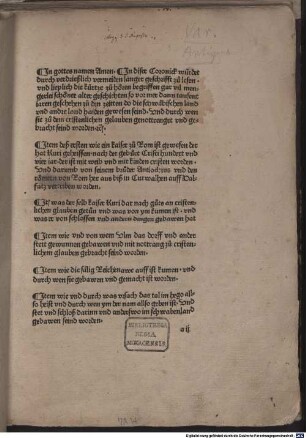 In gottes namen Amen. In diser Coronick würdet
durch verdrießlich vermeiden langer geschrifft zů lesen
und lieplich die kürtze zů hören begriffen gar vil men
gerlei schöner alter geschichten so vor mer dann tausent
iaren geschehen zů den zeiten do die schwebischen land
und andre land haiden gewesen seind. Und durch wen
sie zů dem cristenlichen gelauben genottrenget und ge
bracht seind worden
Item deß ersten wie ein kaiser zů Rom ist gewesen der
hat Kuri geheissen nach der gebürt Cristi hundert und
vier iar der ist mit weib und mit kinden cristen worden
Und darumb von seinem brůder und den
römern von Rom her auß biß in Curwalhen auff
vertriben worden.
was der selb kaiser Kuri dar nach gůts an cristen
lichem glauben getůn und was von ym kumen ist. und
was er von schlossen und andern dingen gebawen hat
Item wie und von wem Ulm das dorff und ander
stett gewunnen gebawen und mit nottrang zů cristen
lichem glauben gebracht seind worden.
Item wie die sälig Reichenawe auff ist kumen. und
durch wen sie gebawen und gemacht ist worden
Item wie und durch was ursach das tal im hego all
so heist und durch wen ym der nam allso geben ist. Und
stet und schloß darinn und anderswo im schwabenland
gebawen seind worden.
a ij
BIBLIOTHECA
REGIA
MONACENSIS.